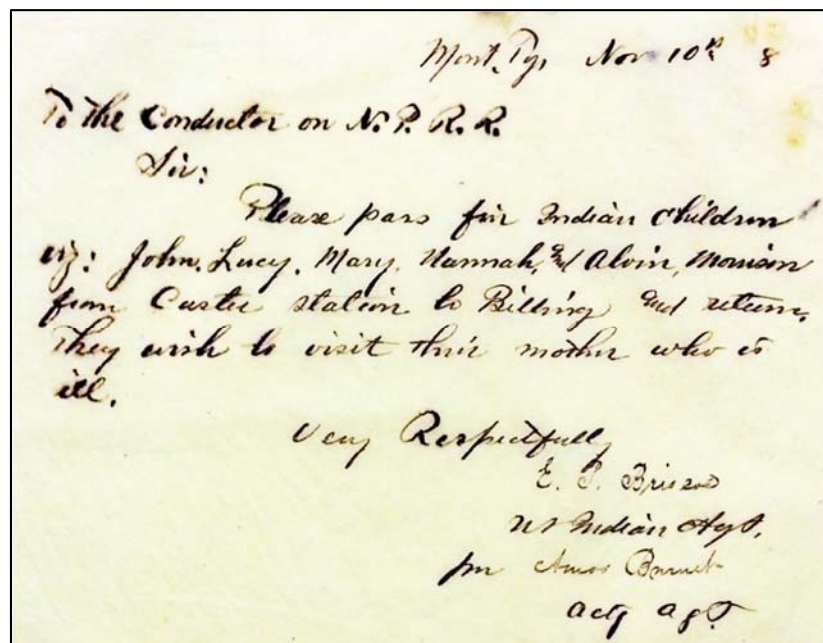 Mont. Ty. Nov 10th 8
To the Conductor on N. P. R. R.
Sir:
Please pass five Indian Children
viz: John, Lucy, Mary, Hannah, and Alvin, Morrison
from Custer station to Billing and return.
They wish to visit their mother who is
ill.
Very Respectfully
E. P.
US Indian Agt.
per Amos
actg agt